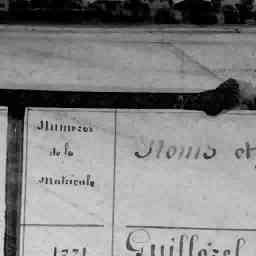 Numéros
de la
Matricule
Noms et
1771
Guillozel